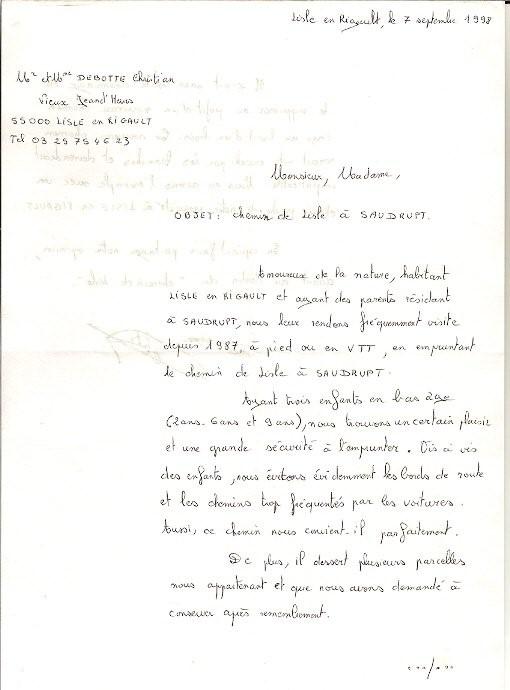 Lisle en Rigault, le 7 septembre 1998
Mr et Mme DEBOTTE Christian
Vieux Jeand'Hans
55000 LISLE EN RIGAULT
Tel 03 29 75 46 23
Monsieur, Madame,
OBJET: chemin de Lisle à SAUDRUPT.
Amoureux de la nature, habitant
LISLE en RIGAULT et ayant des parents résidant
à SAUDRUPT, nous leur rendons fréquemment visite
depuis 1987, à pied ou en VTT, en empruntant
le chemin de Lisle à SAUDRUPT.
Ayant trois enfants en bas age
(2ans. 6ans et 9ans), nous trouvons un certain plaisir
et une grande sécurité à l'emprunter. Vis à vis
des enfants, nous évitons évidemment les bords de route
et les chemins trop fréquentés par les voitures.
Aussi, ce chemin nous convient-il parfaitement.
De plus, il dessert plusieurs parcelles
nous appartenant et que nous avons demandé à
conserver après remembrement.
.../...